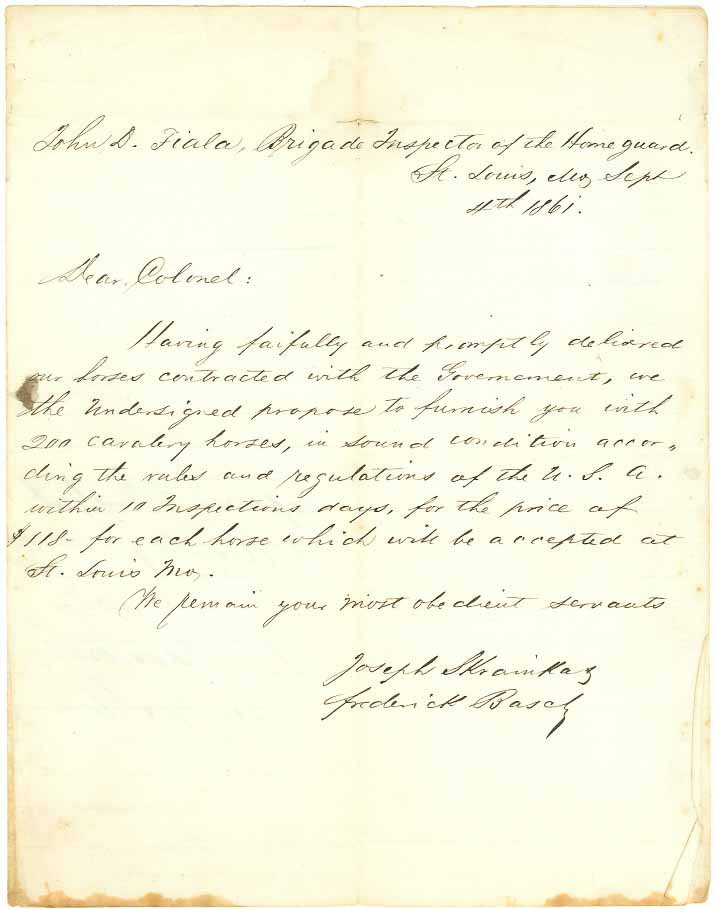 John D. Fiala, Brigade Inspector of the Home guard.
St. Louis, Mo, Sept
4th 1861.
Dear Colonel:
Having faifully and promptly delivred
our horses contracted with the Governement, we
the Undersigned propose to furnish you with
200 cavalery horses, in sound condition accor„
ding the rules and regulations of the U. S. A.
within 10 Inspections days, for the price of
$118- for each horse which will be accepted at
St. Louis Mo.
We remain your most obedient servants
Joseph Skrainka
Frederick Basch